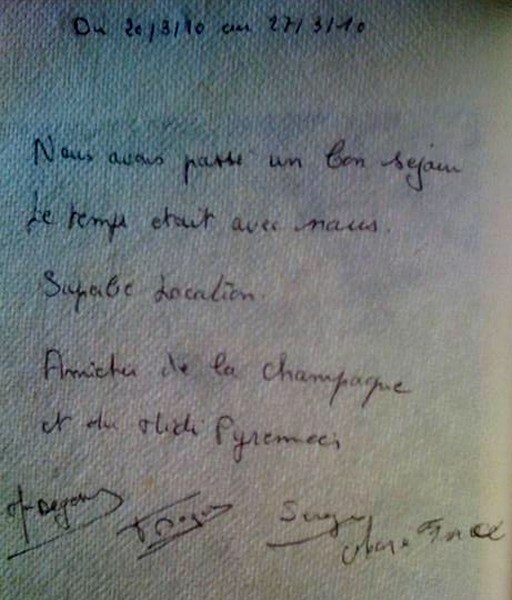 Du 20/3/10 au 27/3/10
Nous avons passé un bon sejour
Le temps etait avec nous.
Superbe Location.
Amities de la champagne
et du Midi Pyrennees
Serge